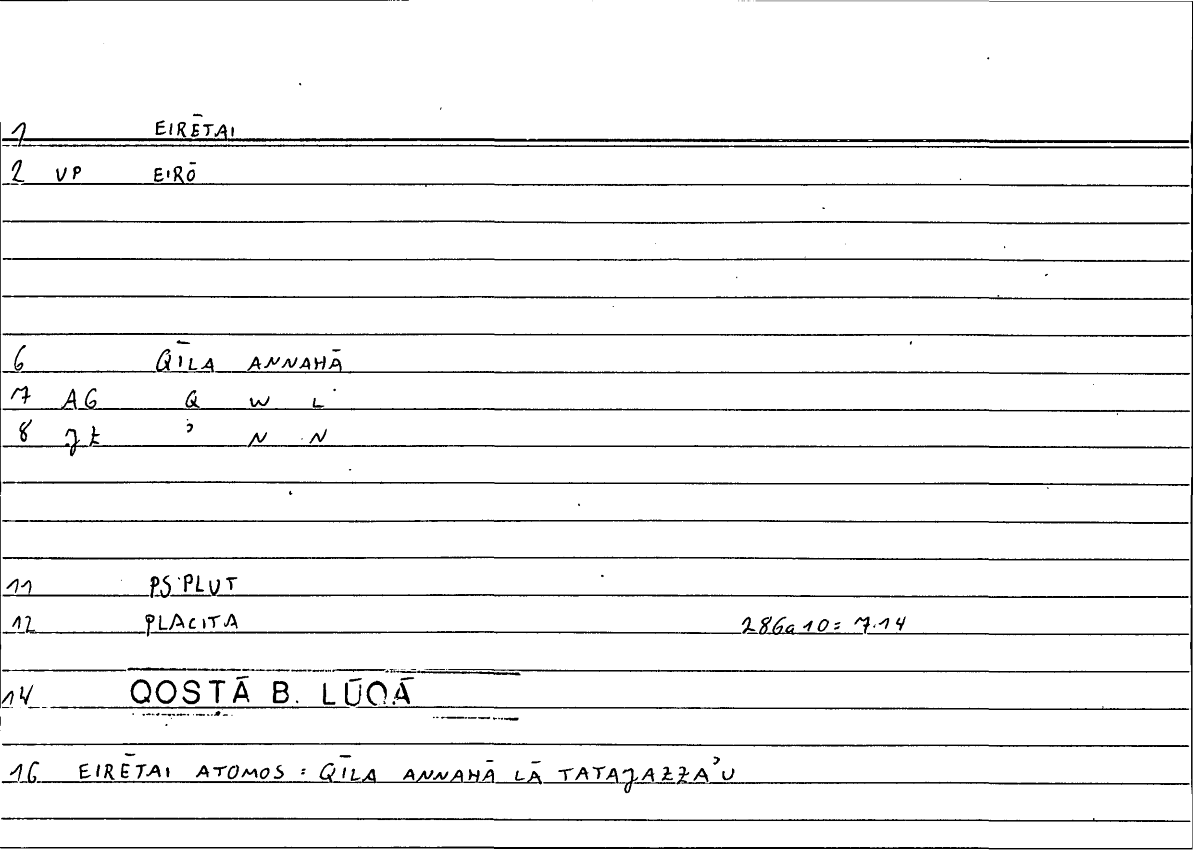 1 EIRĒTAI
2 VP EIRŌ
6 QĪLA ANNAHĀ
7 AG Q W L
8 ʾ N N
11 PS PLUT
12 PLACITA 286a10 = 7.14
14 QOSTĀ B. LŪQĀ
16 EIRĒTAI ATOMOS : QĪLA ANNAHĀ LĀ TATAJAZZAʾU